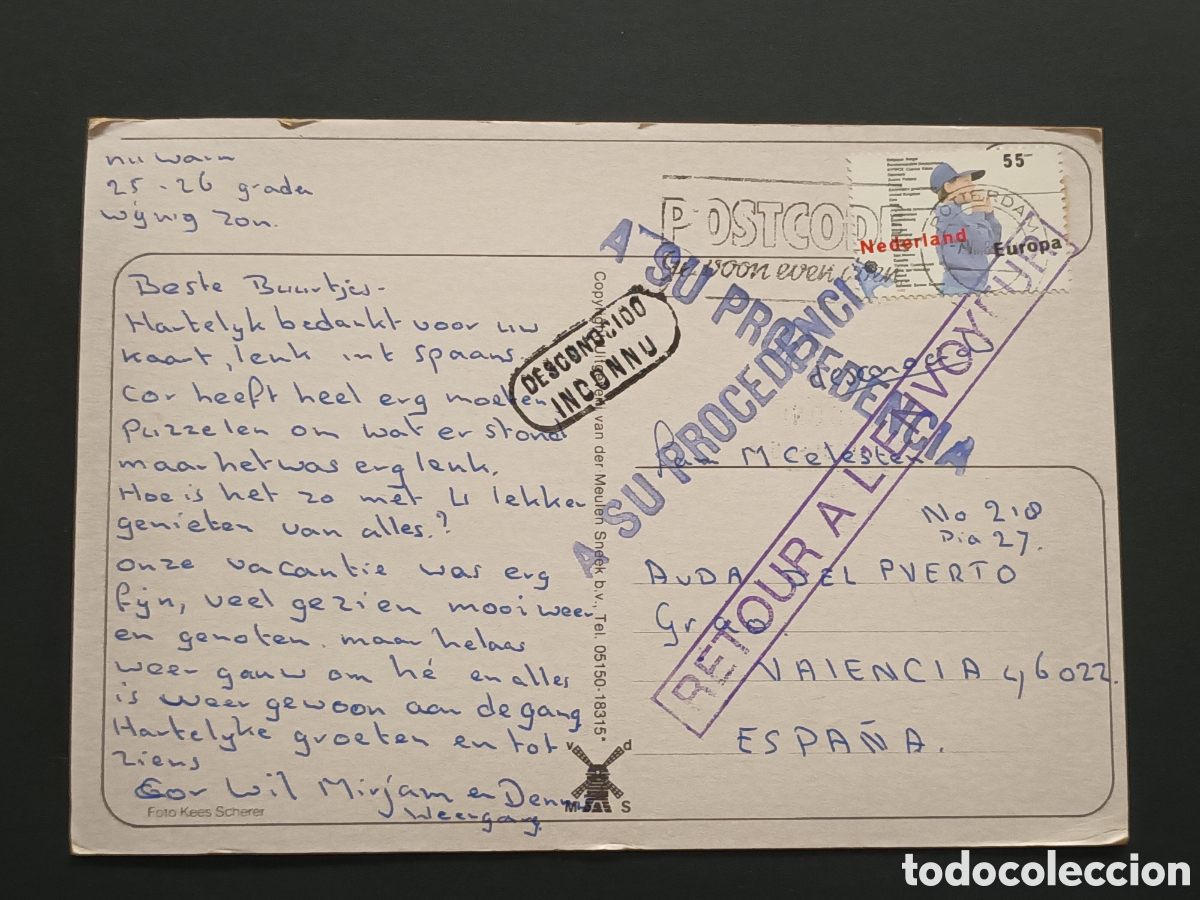 nu warm
25-26 graden
wijnig zon.
Beste Buurtjes-
Hartelijk bedankt voor uw
kaart, leuk int spaans
Cor heeft heel erg moeten
Puzzelen om wat er stond
maar het was erg leuk.
Hoe is het zo met U lekker
genieten van alles?
onze vacantie was erg
fijn, veel gezien mooi weer
en genoten. maar helaas
weer gauw om hé en alles
is weer gewoon aan de gang
Hartelijke groeten en tot
ziens
Cor Wil Mirjam en Dennis
Weergang
Foto Kees Scherer
Copyright: van der Meulen Sneek b.v., Tel. 05150-18315*
v d
M S
POSTCODE
gewoon even doen
ROTTERDAM
55
Nederland
Europa
A SU PROCEDENCIA
A SU PROCEDENCIA
DESCONOCIDO
INCONNU
RETOUR A L'ENVOYEUR
Fam M Celester
No 218
Dia 27.
AUDA DEL PUERTO
Grao
VALENCIA 46022.
ESPAÑA.
todocoleccion